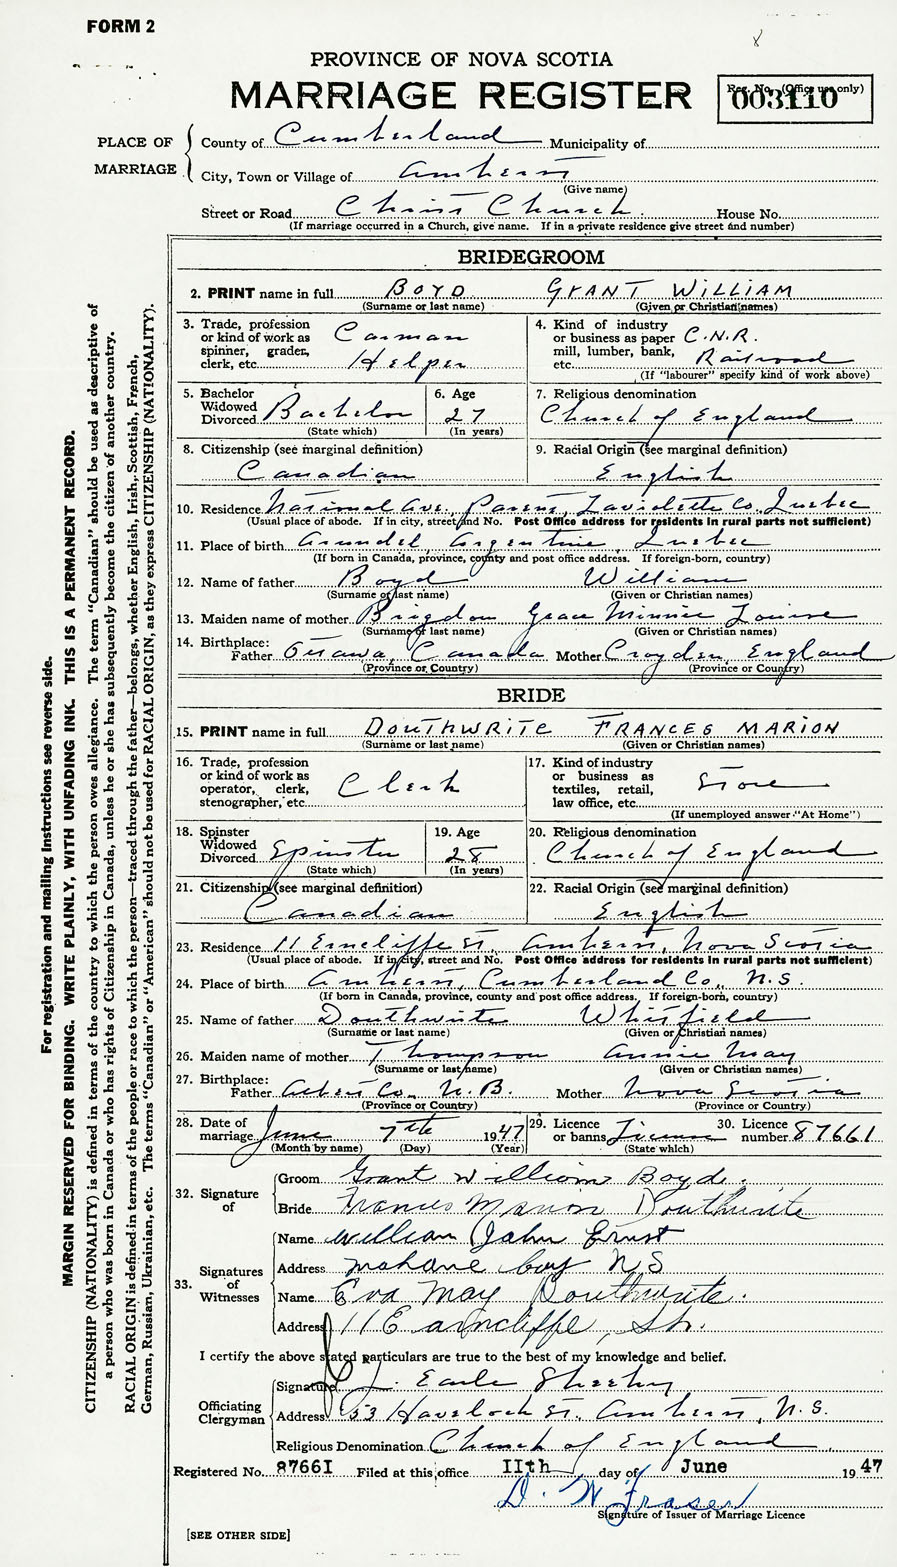 FORM 2
PROVINCE OF NOVA SCOTIA
MARRIAGE REGISTER
Reg. No. (Office use only)
003110
PLACE OF MARRIAGE
County of Cumberland Municipality of
City, Town or Village of Amherst
(Give name)
Street or Road Christ Church House No.
(If marriage occurred in a Church, give name. If in a private residence give street and number)
BRIDEGROOM
2. PRINT name in full BOYD GRANT WILLIAM
(Surname or last name) (Given or Christian names)
3. Trade, profession or kind of work as spinner, grader, clerk, etc. Carman Helper
4. Kind of industry or business as paper mill, lumber, bank, etc. C.N.R. Railroad
(If "labourer" specify kind of work above)
5. Bachelor Widowed Divorced Bachelor
(State which)
6. Age 27
(In years)
7. Religious denomination
Church of England
8. Citizenship (see marginal definition)
Canadian
9. Racial Origin (see marginal definition)
English
10. Residence National Ave., Parent, Laviolette Co., Quebec
(Usual place of abode. If in city, street and No. Post Office address for residents in rural parts not sufficient)
11. Place of birth Arundel Argentine, Quebec
(If born in Canada, province, county and post office address. If foreign-born, country)
12. Name of father Boyd William
(Surname or last name) (Given or Christian names)
13. Maiden name of mother Brigdon Grace Minnie Louise
(Surname or last name) (Given or Christian names)
14. Birthplace: Father Ottawa, Canada Mother Croyden, England
(Province or Country) (Province or Country)
BRIDE
15. PRINT name in full DOUTHWRITE FRANCES MARION
(Surname or last name) (Given or Christian names)
16. Trade, profession or kind of work as operator, clerk, stenographer, etc. Clerk
17. Kind of industry or business as textiles, retail, law office, etc. Store
(If unemployed answer "At Home")
18. Spinster Widowed Divorced Spinster
(State which)
19. Age 28
(In years)
20. Religious denomination
Church of England
21. Citizenship (see marginal definition)
Canadian
22. Racial Origin (see marginal definition)
English
23. Residence 11 Erncliffe St., Amherst, Nova Scotia
(Usual place of abode. If in city, street and No. Post Office address for residents in rural parts not sufficient)
24. Place of birth Amherst, Cumberland Co., N.S.
(If born in Canada, province, county and post office address. If foreign-born, country)
25. Name of father Douthwrite Whitfield
(Surname or last name) (Given or Christian names)
26. Maiden name of mother Thompson Annie May
(Surname or last name) (Given or Christian names)
27. Birthplace: Father Albert Co., N.B. Mother Nova Scotia
(Province or Country) (Province or Country)
28. Date of marriage June 7th 1947
(Month by name) (Day) (Year)
29. Licence or banns License
(State which)
30. Licence number 87661
32. Signature of
Groom Grant William Boyd.
Bride Frances Marion Douthwrite
33. Signatures of Witnesses
Name William John Ernst
Address Mahone bay N S
Name Eva May Douthwrite.
Address 11 Earncliffe, St.
I certify the above stated particulars are true to the best of my knowledge and belief.
Officiating Clergyman
Signature Earle Sheehy
Address 53 Havelock St. Amherst, N.S.
Religious Denomination Church of England
Registered No. 87661 Filed at this office 11th day of June 1947
D. W. Fraser
Signature of Issuer of Marriage Licence
[SEE OTHER SIDE]
For registration and mailing instructions see reverse side.
MARGIN RESERVED FOR BINDING. WRITE PLAINLY, WITH UNFADING INK. THIS IS A PERMANENT RECORD.
CITIZENSHIP (NATIONALITY) is defined in terms of the country to which the person owes allegiance. The term "Canadian" should be used as descriptive of
a person who was born in Canada or who has rights of Citizenship in Canada, unless he or she has subsequently become the citizen of another country.
RACIAL ORIGIN is defined in terms of the people or race to which the person—traced through the father—belongs, whether English, Irish, Scottish, French,
German, Russian, Ukrainian, etc. The terms "Canadian" or "American" should not be used for RACIAL ORIGIN, as they express CITIZENSHIP (NATIONALITY).